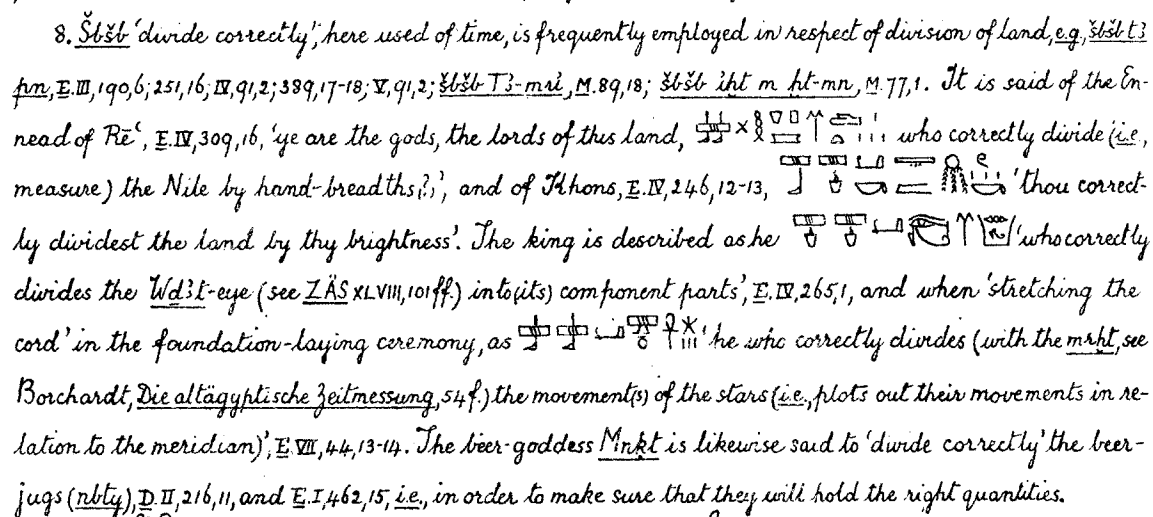 8. Šbšb 'divide correctly', here used of time, is frequently employed in respect of division of land, e.g., šbšb tꜣ
pn, E. III, 190, 6; 251, 16; IV, 91, 2; 389, 17-18; V, 91, 2; šbšb Tꜣ-mri, M. 89, 18; šbšb iḫt m ḫt-mn, M. 77, 1. It is said of the En-
nead of Rēꜥ, E. IV, 309, 16, 'ye are the gods, the lords of this land, who correctly divide (i.e.,
measure) the Nile by hand-breadths(?)', and of Khons, E. IV, 246, 12-13, 'thou correct-
ly dividest the land by thy brightness'. The king is described as he 'who correctly
divides the Wḏꜣt-eye (see ZÄS XLVIII, 101 ff.) into (its) component parts', E. IV, 265, 1, and when 'stretching the
cord' in the foundation-laying ceremony, as 'he who correctly divides (with the mrḫt, see
Borchardt, Die altägyptische Zeitmessung, 54 f.) the movement(s) of the stars (i.e., plots out their movements in re-
lation to the meridian)', E. VII, 44, 13-14. The beer-goddess Mnḳt is likewise said to 'divide correctly' the beer-
jugs (nbty), D. II, 216, 11, and E. I, 462, 15, i.e., in order to make sure that they will hold the right quantities.